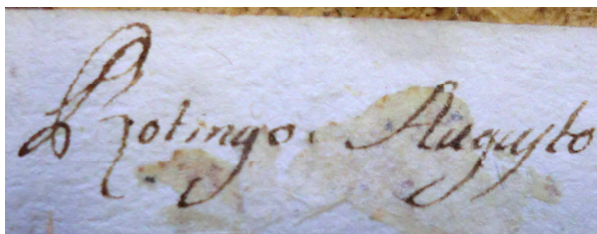 Rotingo Augusto